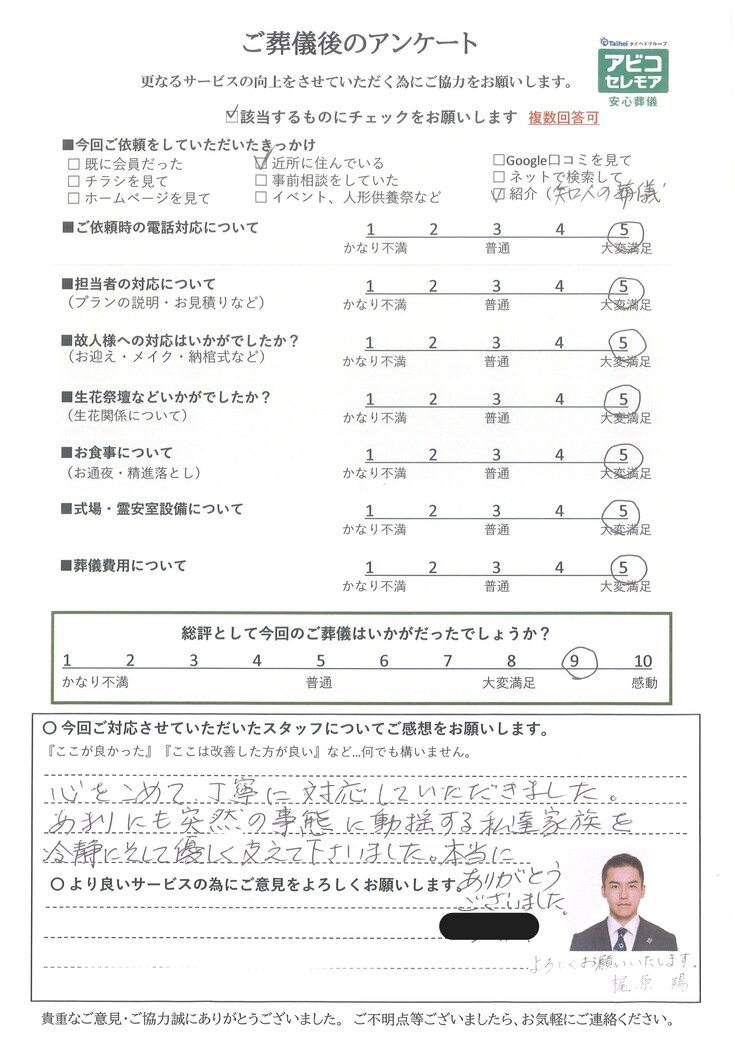 ご葬儀後のアンケート
Taihei タイヘイグループ
アビコ
セレモア
安心葬儀
更なるサービスの向上をさせていただく為にご協力をお願いします。
☑該当するものにチェックをお願いします 複数回答可
■今回ご依頼をしていただいたきっかけ
□ 既に会員だった ☑ 近所に住んでいる □Google口コミを見て
□ チラシを見て □ 事前相談をしていた □ ネットで検索して
□ ホームページを見て □ イベント、人形供養祭など ☑ 紹介（知人の葬儀
■ご依頼時の電話対応について 1 2 3 4 5
かなり不満 普通 大変満足
■担当者の対応について 1 2 3 4 5
（プランの説明・お見積りなど） かなり不満 普通 大変満足
■故人様への対応はいかがでしたか？ 1 2 3 4 5
（お迎え・メイク・納棺式など） かなり不満 普通 大変満足
■生花祭壇などいかがでしたか？ 1 2 3 4 5
（生花関係について） かなり不満 普通 大変満足
■お食事について 1 2 3 4 5
（お通夜・精進落とし） かなり不満 普通 大変満足
■式場・霊安室設備について 1 2 3 4 5
かなり不満 普通 大変満足
■葬儀費用について 1 2 3 4 5
かなり不満 普通 大変満足
総評として今回のご葬儀はいかがだったでしょうか？
1 2 3 4 5 6 7 8 9 10
かなり不満 普通 大変満足 感動
〇 今回ご対応させていただいたスタッフについてご感想をお願いします。
『ここが良かった』『ここは改善した方が良い』など…何でも構いません。
心をこめて、丁寧に対応していただきました。
あまりにも突然の事態に動揺する私達家族を
冷静にそして優しく支えて下さいました。本当に
〇 より良いサービスの為にご意見をよろしくお願いします。
ありがとう
ございました。
よろしくお願いいたします。
梶原 陽
貴重なご意見・ご協力誠にありがとうございました。 ご不明点等ございましたら、お気軽にご連絡ください。